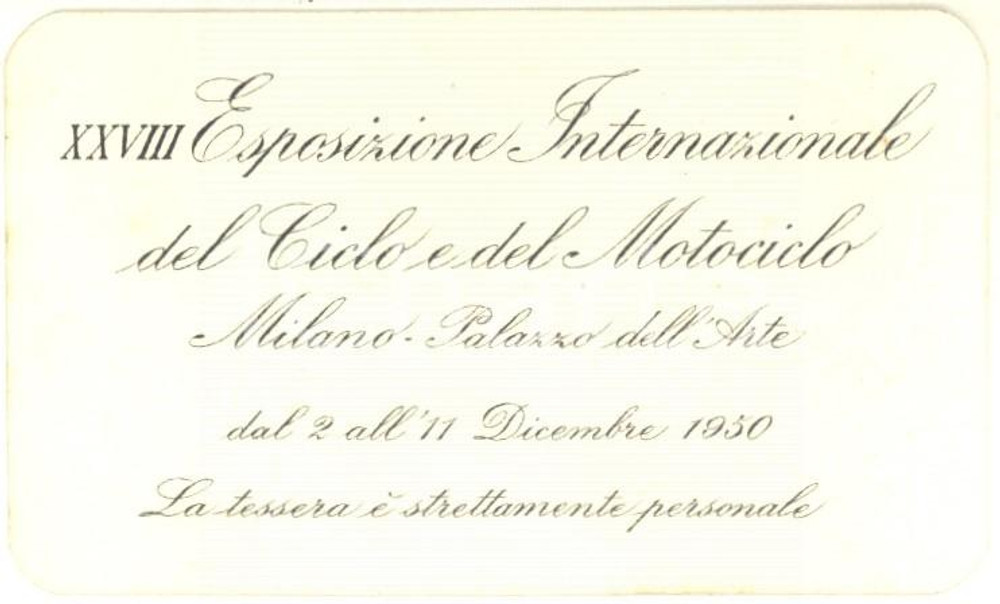 XXVIII Esposizione Internazionale
del Ciclo e del Motociclo
Milano - Palazzo dell'Arte
dal 2 all'11 Dicembre 1950
La tessera è strettamente personale